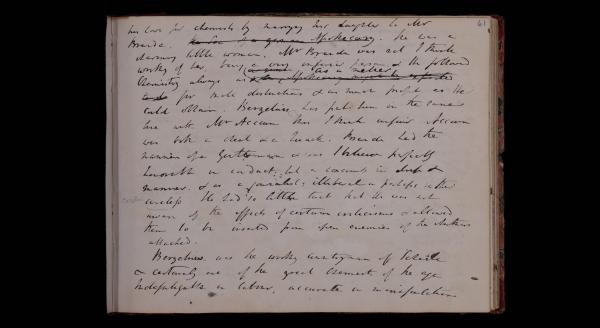 61
his love for chemistry by marrying his daughter to Mr
Brande. the Son of a german Apothecary. She was a
charming little woman, Mr Brande was not I think
worthy of her, being a very inferior person & he followed
Chemistry always as a matter
for trade distinctions & as much profit as He
could obtain. Berzelius has put him on the same
line with Mr Accum this I think unfair Accum
was both a cheat & a quack. Brande had the
manners of a Gentleman & was I believe perfectly
honorable in conduct; but a coxcomb in
manner & as a journalist; illiberal & perhaps rather
careless He had so little tact that He was not
aware of the effects of certain criticisms & allowed
them to be inserted from open enemies of the Authors
attacked.
Berzelius was the worthy countryman of Scheele
& certainly one of the great Chemists of the age
Indefatigable in labour, accurate in manipulation